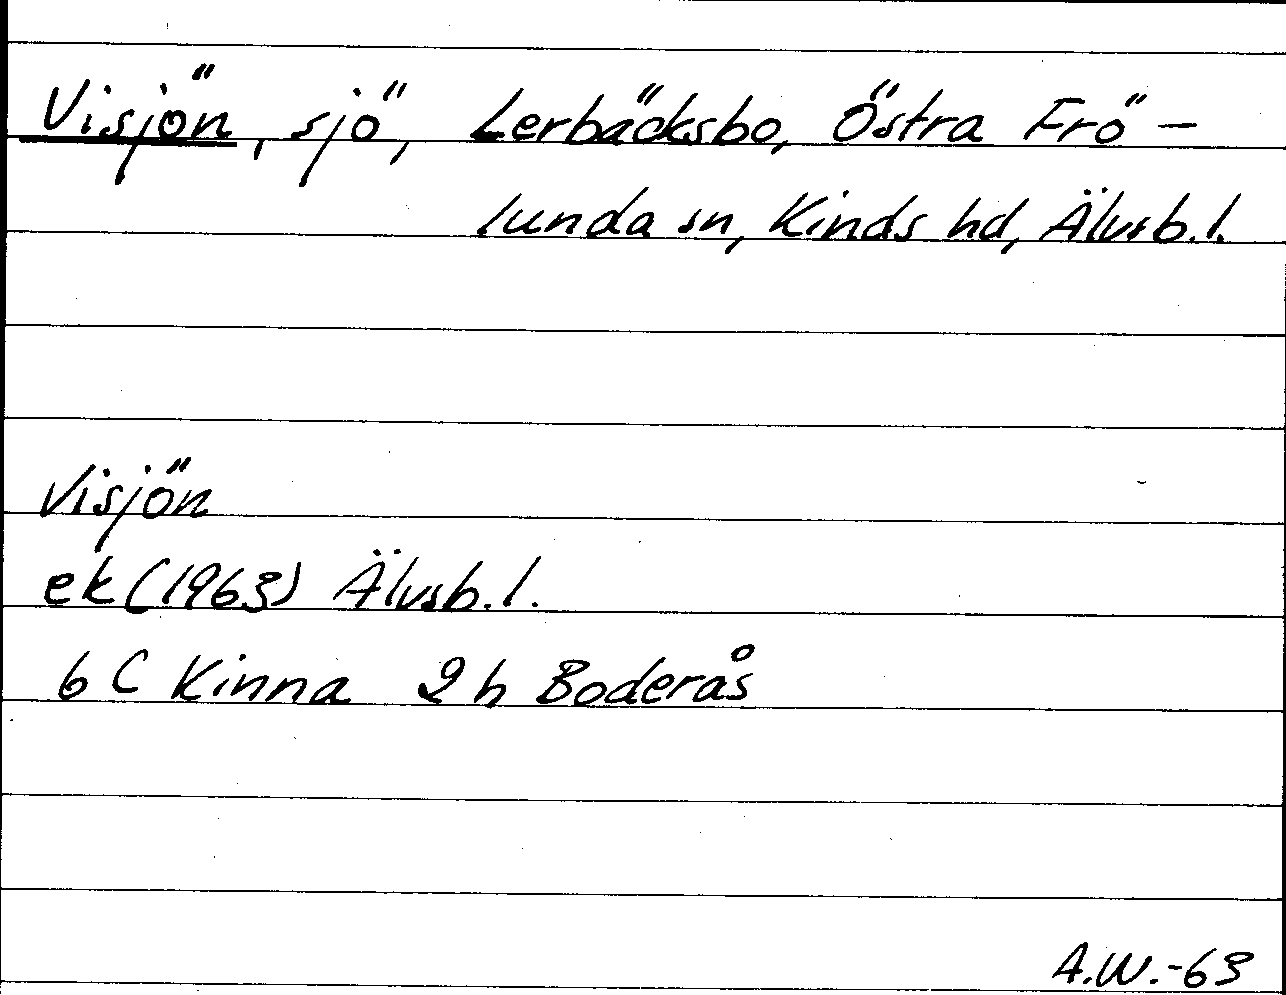 Visjön, sjö, Lerbäcksbo, Östra Frö-
lunda sn, Kinds hd, Älvsb. l.
Visjön
ek (1963) Älvsb. l.
6 C Kinna 2 h Boderås
A.W.-63